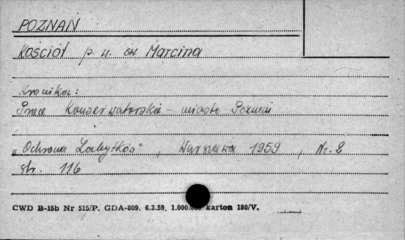 POZNAŃ
Kościół p. w. św Marcina
Kronika:
Prace Konserwatorskie - miasto Poznań
„Ochrona Zabytków", Warszawa 1959, Nr. 2
str. 116
CWD B-15b Nr 515/P. GDA-809. 6.3.59. 1.000. karton 180/V.